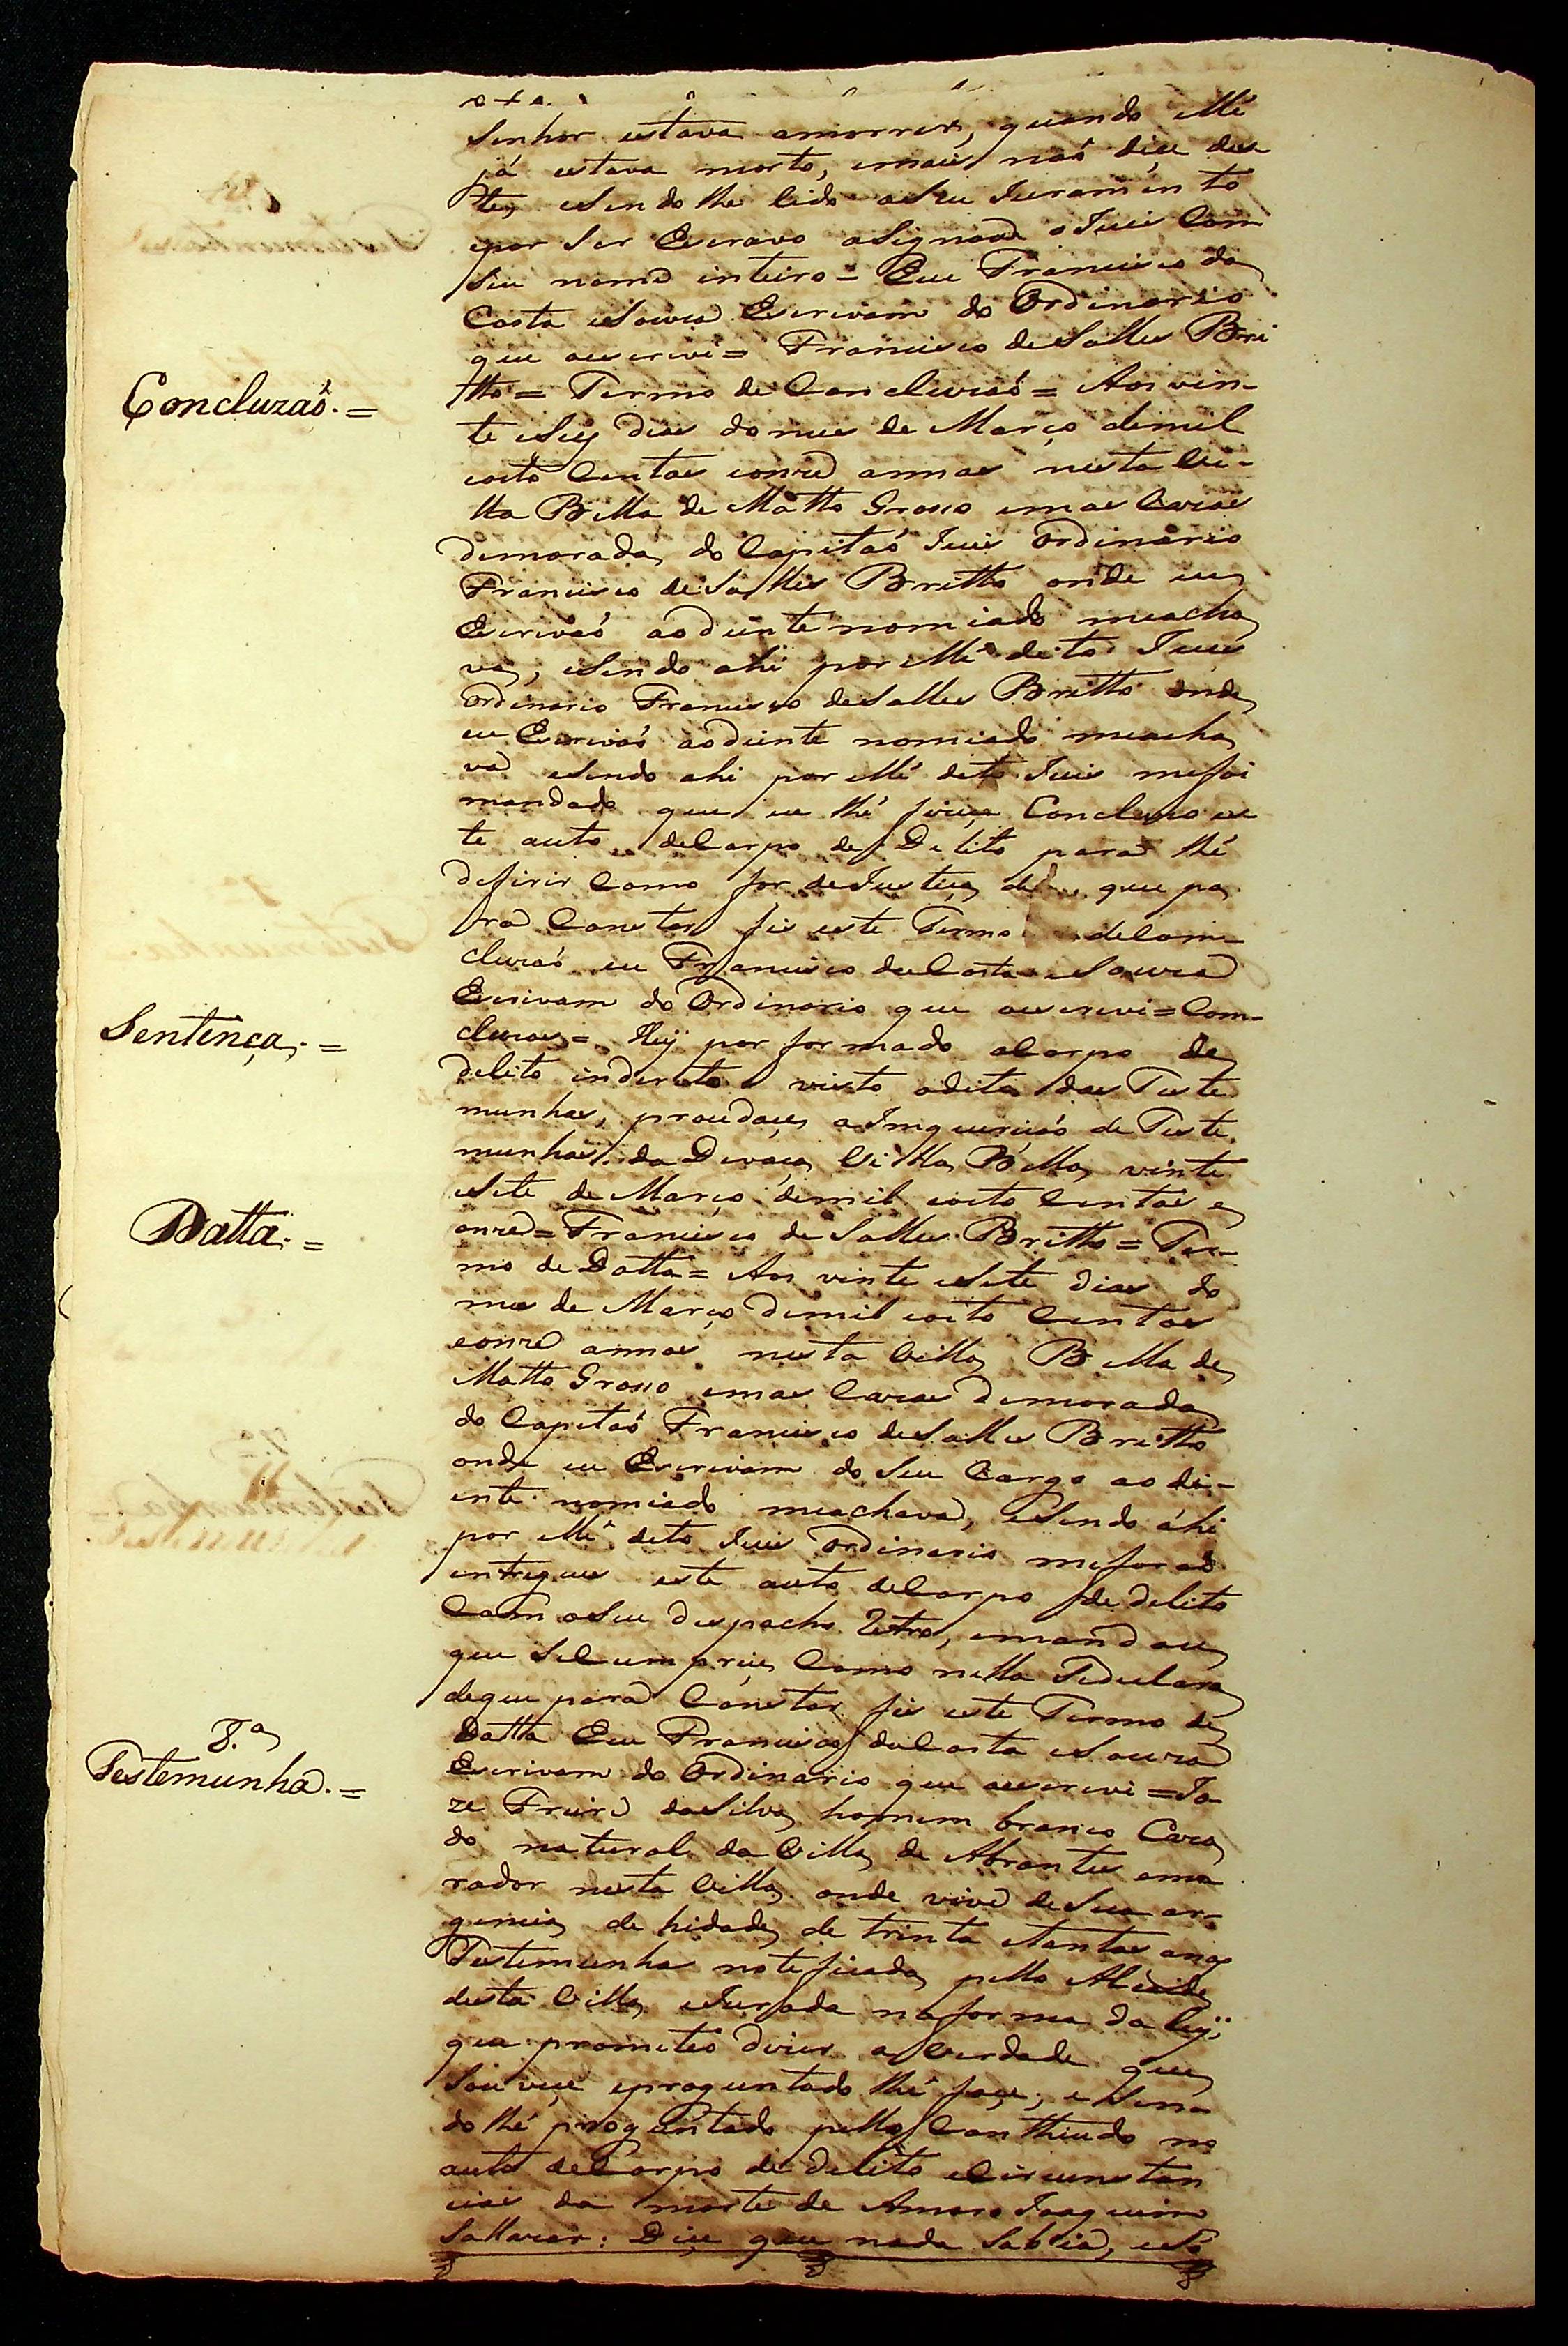 Senhor estava amorrer, quando elle
já estava morto, emais naõ dice des
te, eSendo lhe lido oSeu Juramento
epor Ser Escravo aSignou o Juis Com
Seu nome inteiro = Eu Francisco da
Costa eSouza Escrivam do Ordinario
que oescrevi = Francisco deSalles Bri
tto = Termo de Concluzaõ = Aos vin-
Concluzaõ. =
te eSeis dias domes de Março demil
eoito Centos eonze annos nesta Vi-
lla Bella de Matto Groso emas Cazas
demorada do Capitaõ Juis Ordinario
Francisco deSalles Britto onde eu
Escrivaõ aodiente nomiado meacha
va, eSendo ahi por elle dito Juis
Ordinario Francisco deSalles Britto onde
eu Escrivaõ aodiente nomiado meacha
va eSendo ahi por elle dito Juis mefoi
mandado que eu lhé fizece Concluzo es
te auto deCorpo de Delito para lhé
defirir Como for deJustiça de que pa
ra Constar fis este Termo deCom-
cluzaõ eu Francisco daCosta eSouza
Escrivam do Ordinario que oescrevi = Com-
Sentença. =
cluzos = Hey por formado oCorpo de
delito indereto visto odito das Teste
munhas, procedace a Inquiriçaõ de Teste
munhas da Devaça Villa Bella vinte
eSete de Março demil eoito Centos e
Datta. =
onze = Francisco de Salles Britto = Ter-
mo de Datta = Aos vinte eSete dias do
mes de Março demil eoito Centos
eonze annos nesta Villa Bella de
Matto Groso emas Cazas demorada
do Capitaõ Francisco deSalles Britto
onde eu Escrivam do Seu Cargo ao di-
ente nomiado meachava, eSendo áhi
por elle dito Juis Ordinario meforaõ
entregues este auto deCorpo de delito
Com oSeu despacho Retro, emandou
que SeCumprice Como nella Sedeclara
deque para Constar fis este Termo de
Datta Eu Francisco daCosta eSouza
8.ª
Testemunha. =
Escrivam do Ordinario que oescrevi = Jo
ze Freire daSilva homem branco Caza
do natural da Villa de Abrantes emo
rador nesta Villa onde vive deSua ar-
gencia de hidade de trinta etantos anos
Testemunha noteficada pello Alcaide
desta Villa eJurada naforma da Ley;
que prometeo dizer a Verdade que
Souvece eproguntado lhé foce; eSen-
do lhé proguntado pello Contheudo no
auto deCorpo de delito eCircunstan
cias da morte de Amaro Joaquim
Sallazar: Dice que nada Sabia, eSó